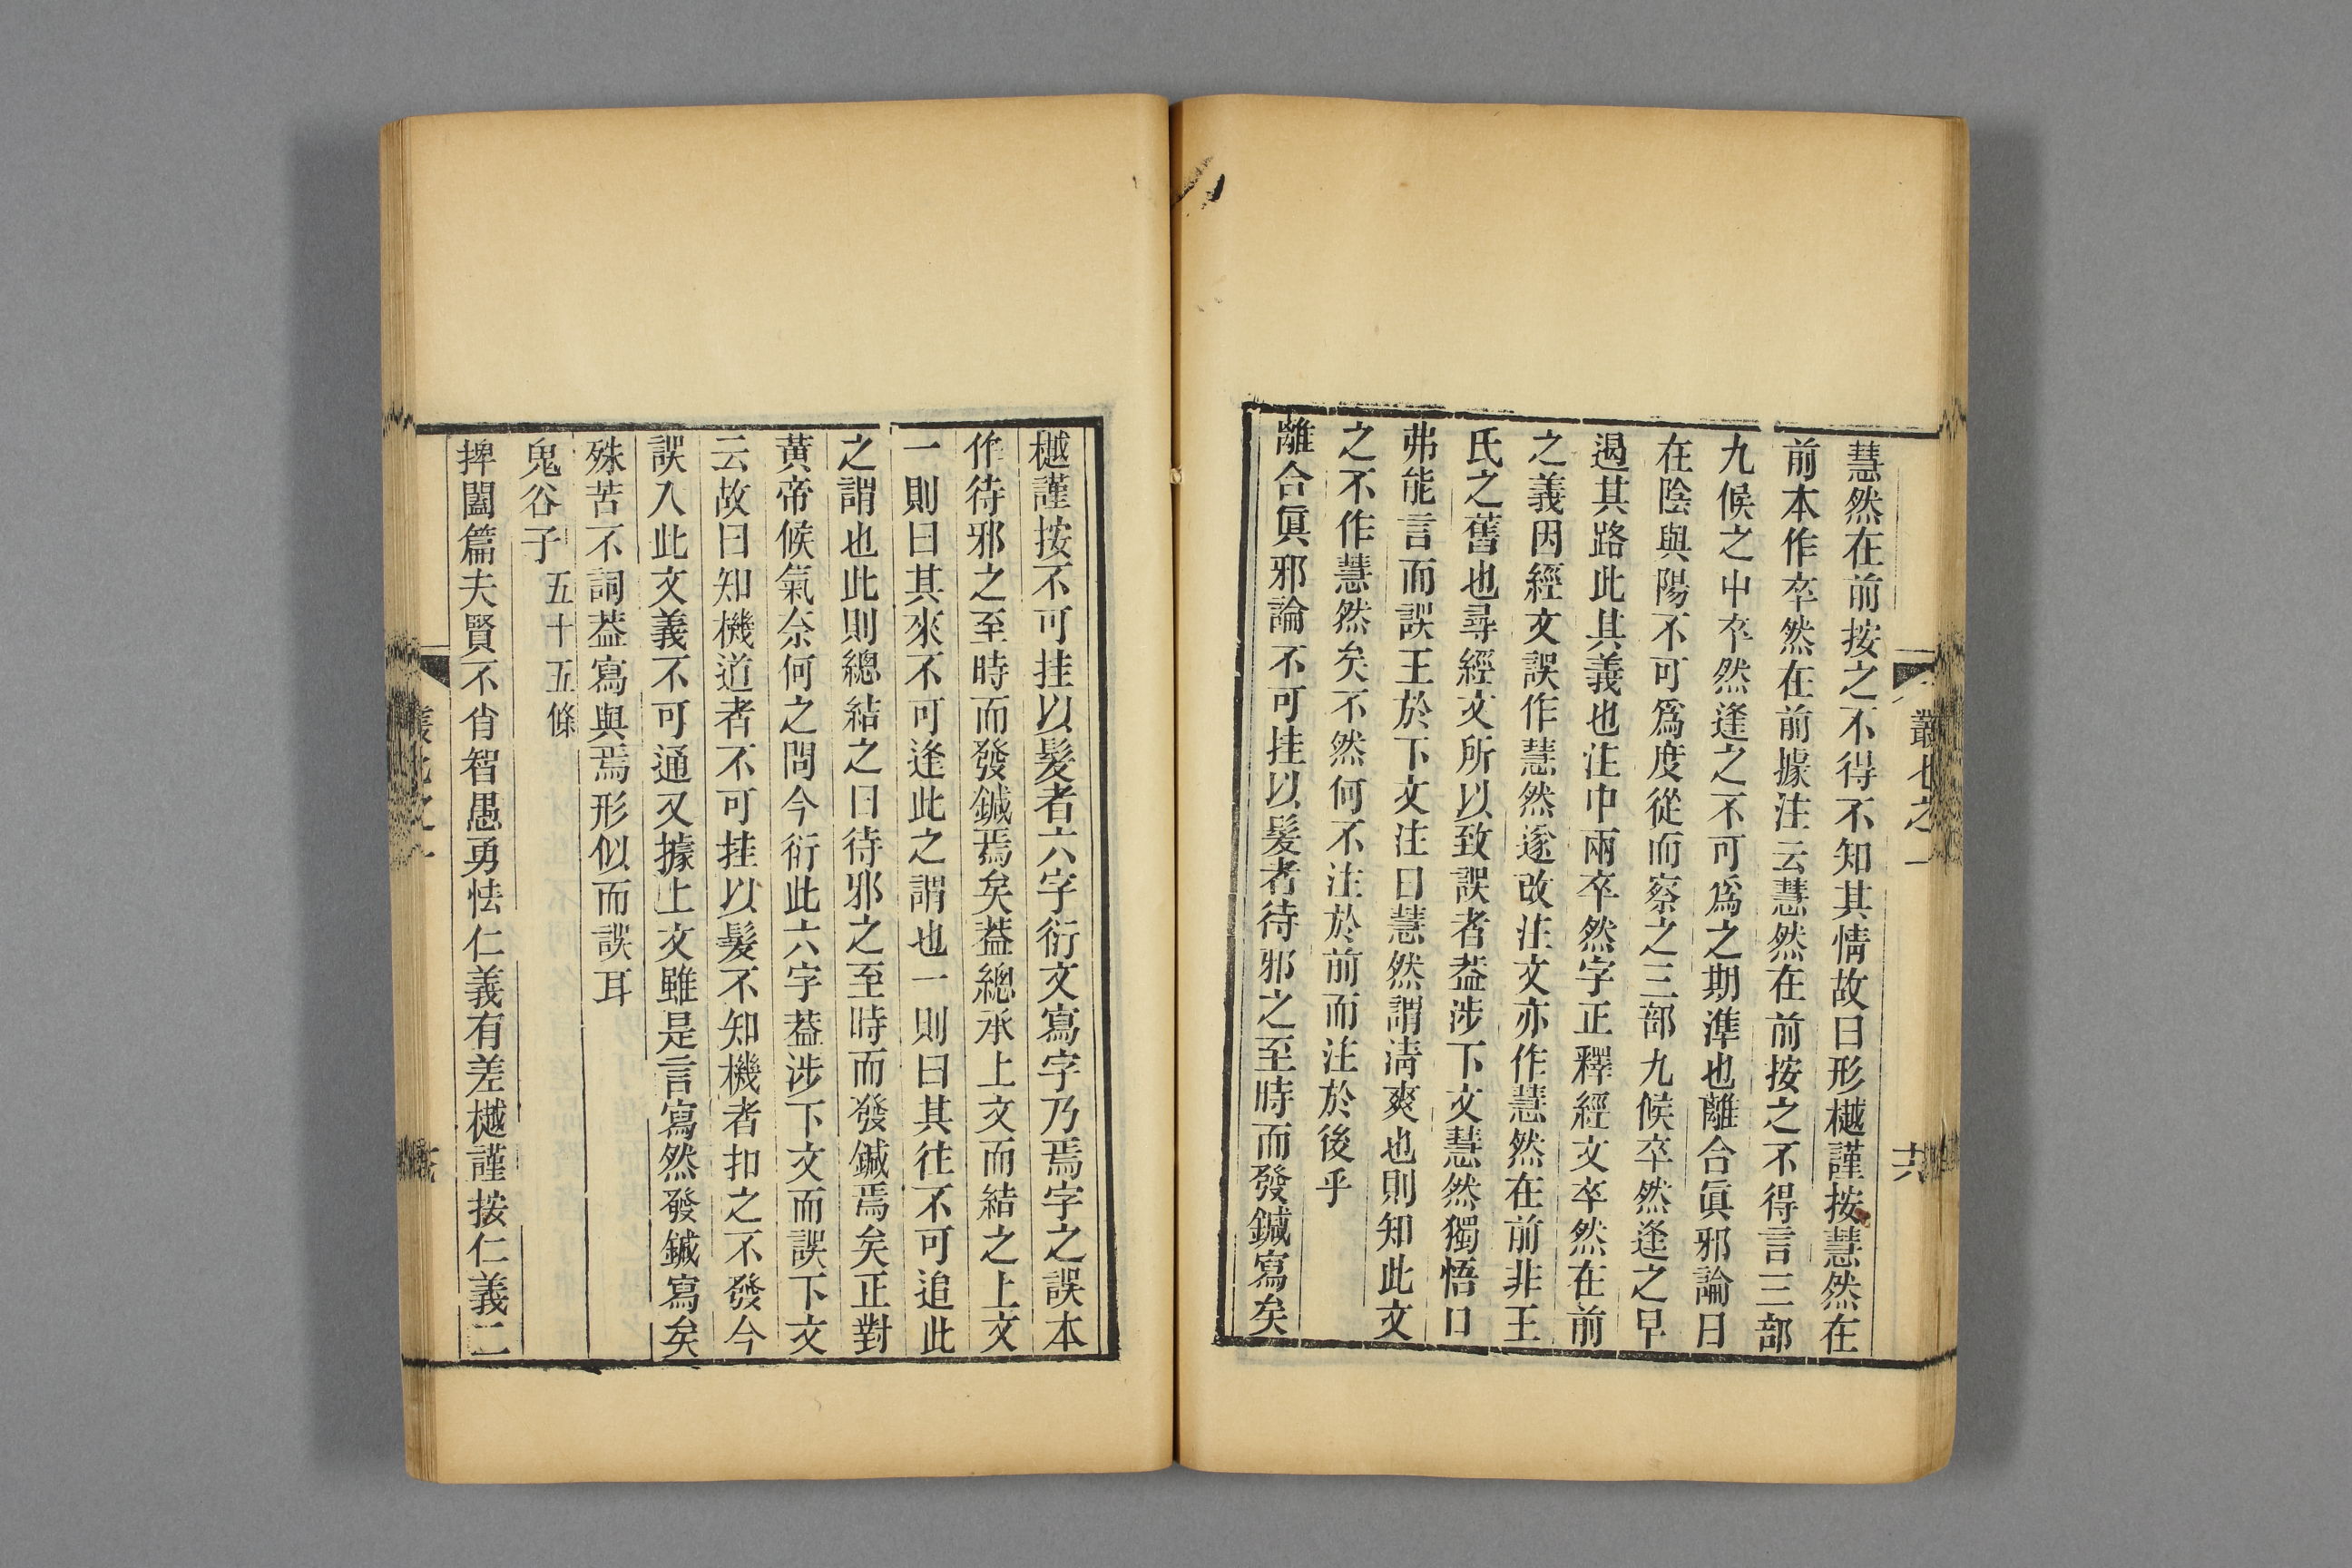 慧然在前按之不得不知其情故曰形樾謹按慧然在
前本作卒然在前據注云慧然在前按之不得言三部
九候之中卒然逢之不可為之期準也離合眞邪論曰
在陰與陽不可爲度從而察之三部九候卒然逢之早
遏其路此其義也注中兩卒然字正釋經文卒然在前
之義因經文誤作慧然遂改注文亦作慧然在前非王
氏之舊也尋經文所以致誤者葢涉下文慧然獨悟口
弗能言而誤王於下文注曰慧然謂淸爽也則知此文
之不作慧然矣不然何不注於前而注於後乎
離合眞邪論不可挂以髮者待邪之至時而發鍼寫矣
叢七之一
十六
樾謹按不可挂以髮者六字衍文寫字乃焉字之誤本
作待邪之至時而發鍼焉矣葢總承上文而結之上文
一則曰其來不可逢此之謂也一則曰其往不可追此
之謂也此則總結之曰待邪之至時而發鍼焉矣正對
黃帝候氣奈何之問今衍此六字葢涉下文而誤下文
云故曰知機道者不可挂以髮不知機者扣之不發今
誤入此文義不可通又據上文雖是言寫然發鍼寫矣
殊苦不詞葢寫與焉形似而誤耳
鬼谷子 五十五條
捭闔篇夫賢不肖智愚勇怯仁義有差樾謹按仁義二